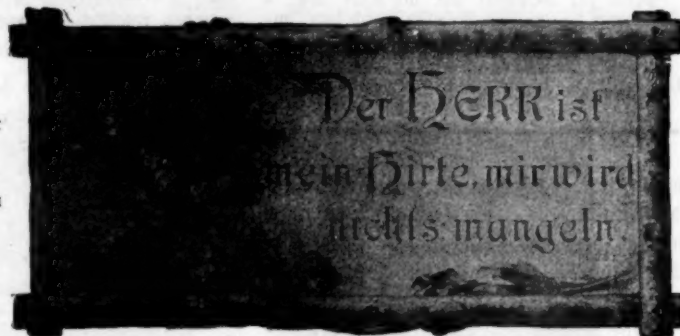 Der HERR ist
mein Hirte, mir wird
nichts mangeln.